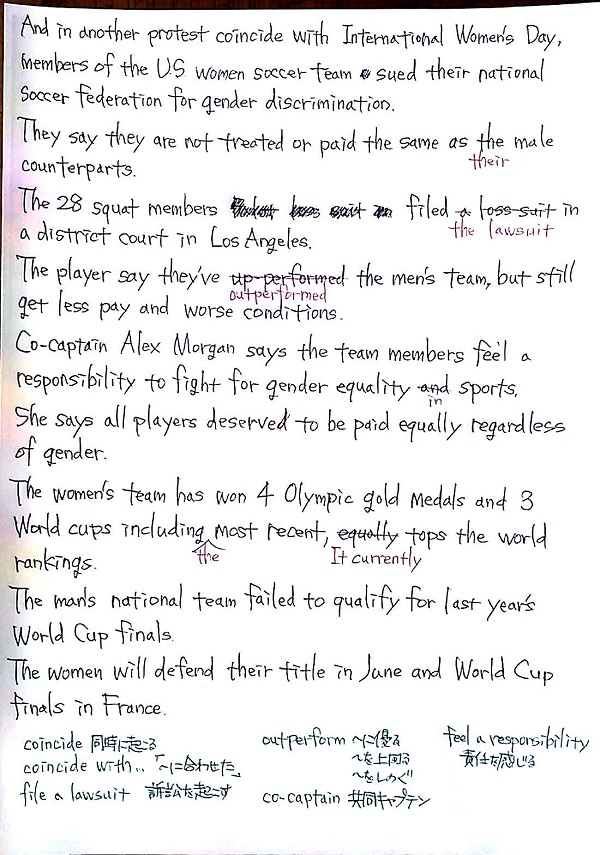 And in another protest coincide with International Women's Day,
members of the US women soccer team sued their national
soccer federation for gender discrimination.
They say they are not treated or paid the same as the male
their
counterparts.
The 28 squat members filed a loss suit in
the lawsuit
a district court in Los Angeles.
The player say they've up-performed the men's team, but still
outperformed
get less pay and worse conditions.
Co-captain Alex Morgan says the team members feel a
responsibility to fight for gender equality and sports.
in
She says all players deserved to be paid equally regardless
of gender.
The women's team has won 4 Olympic gold medals and 3
World cups including most recent, equally tops the world
the It currently
rankings.
The man's national team failed to qualify for last year's
World Cup finals.
The women will defend their title in June and World Cup
finals in France.
coincide 同時に起こる outperform 〜に優る feel a responsibility
coincide with.. 「〜に合わせた」 〜を上回る 責任を感じる
〜をしのぐ
file a lawsuit 訴訟を起こす co-captain 共同キャプテン